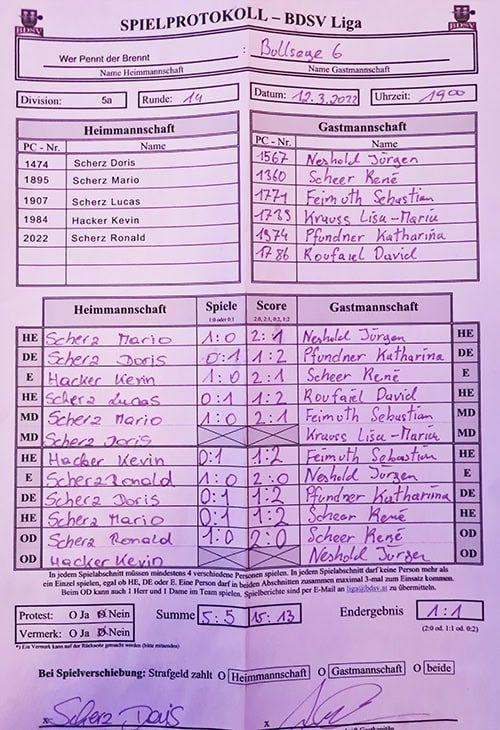 SPIELPROTOKOLL – BDSV Liga
BDSV
BDSV
Wer Pennt der Brennt : Bullseye 6
Name Heimmannschaft Name Gastmannschaft
Division: 5a Runde: 14 Datum: 12.3.2022 Uhrzeit: 1900
Heimmannschaft Gastmannschaft
PC - Nr. Name PC - Nr. Name
1474 Scherz Doris 1567 Neshold Jürgen
1895 Scherz Mario 1360 Scheer René
1907 Scherz Lucas 1771 Feimuth Sebastian
1984 Hacker Kevin 1739 Krauss Lisa-Maria
2022 Scherz Ronald 1974 Pfundner Katharina
1786 Roufaiel David
Heimmannschaft Spiele Score Gastmannschaft
1:0 oder 0:1 2:0, 2:1, 0:2, 1:2
HE Scherz Mario 1:0 2:1 Neshold Jürgen HE
DE Scherz Doris 0:1 1:2 Pfundner Katharina DE
E Hacker Kevin 1:0 2:1 Scheer René E
HE Scherz Lucas 0:1 1:2 Roufaiel David HE
MD Scherz Mario 1:0 2:1 Feimuth Sebastian MD
MD Scherz Doris Krauss Lisa-Maria MD
HE Hacker Kevin 0:1 1:2 Feimuth Sebastian HE
E Scherz Ronald 1:0 2:0 Neshold Jürgen E
DE Scherz Doris 0:1 1:2 Pfundner Katharina DE
HE Scherz Mario 0:1 1:2 Scheer René HE
OD Scherz Ronald 1:0 2:0 Scheer René OD
OD Hacker Kevin Neshold Jürgen OD
In jedem Spielabschnitt müssen mindestens 4 verschiedene Personen spielen. In jedem Spielabschnitt darf keine Person mehr als
ein Einzel spielen, egal ob HE, DE oder E. Eine Person darf in beiden Abschnitten zusammen maximal 3-mal zum Einsatz kommen.
Beim OD kann auch 1 Herr und 1 Dame im Team spielen. Spielberichte sind per E-Mail an liga@bdsv.at zu übermitteln.
Protest: O Ja O Nein Summe 5:5 15:13 Endergebnis 1:1
Vermerk: O Ja O Nein (2:0 od. 1:1 od. 0:2)
*) Ein Vermerk kann auf der Rückseite gemacht werden (bitte mitsenden)
Bei Spielverschiebung: Strafgeld zahlt O Heimmannschaft O Gastmannschaft O beide
x Scherz Doris x